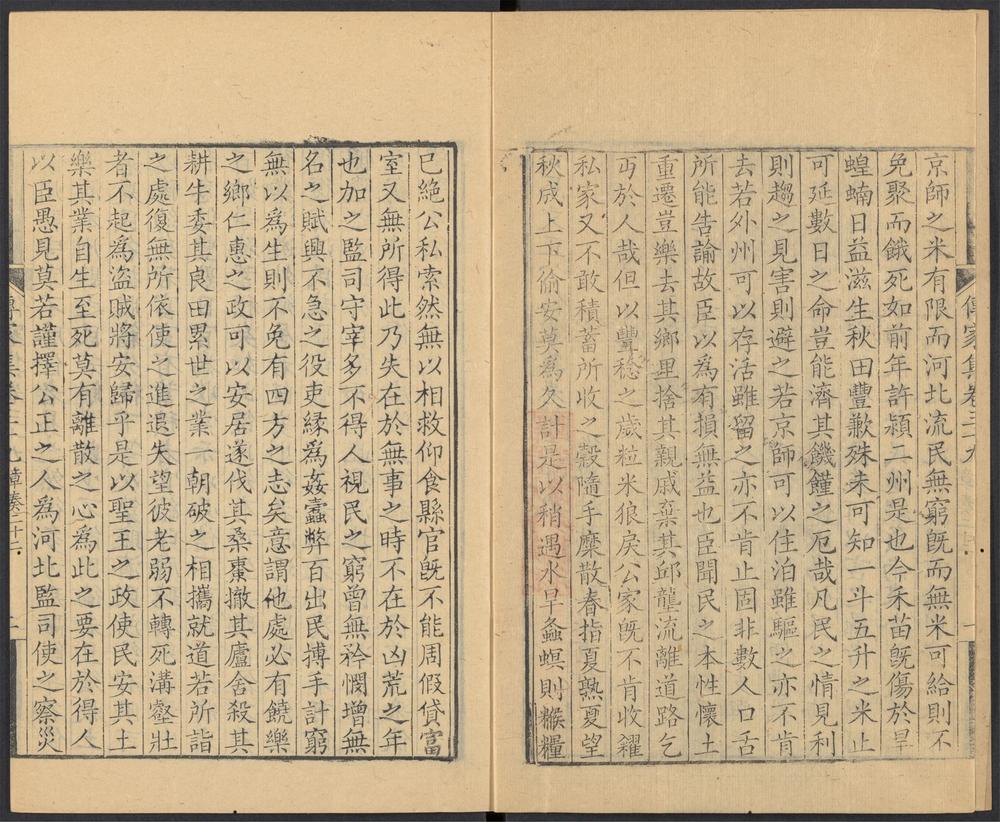 傳家集卷三十九
京師之米有限而河北流民無窮旣而無米可給則不
免聚而餓死如前年許潁二州是也今禾苗旣傷於旱
蝗蝻日益滋生秋田豐歉殊未可知一斗五升之米止
可延數日之命豈能濟其饑饉之厄哉凡民之情見利
則趨之見害則避之若京師可以住泊雖驅之亦不肯
去若外州可以存活雖留之亦不肯止固非數人口舌
所能告諭故臣以爲有損無益也臣聞民之本性懷土
重遷豈樂去其鄉里捨其親戚棄其邱壟流離道路乞
丐於人哉但以豐稔之歲粒米狼戾公家旣不肯收糴
私家又不敢積蓄所收之穀隨手糜散春指夏熟夏望
秋成上下偷安莫爲久計是以稍遇水旱螽螟則餱糧
已絕公私索然無以相救仰食縣官旣不能周假貸富
室又無所得此乃失在於無事之時不在於凶荒之年
也加之監司守宰多不得人視民之窮曾無矜憫增無
名之賦興不急之役吏緣爲姦蠹弊百出民搏手計窮
無以爲生則不免有四方之志矣意謂他處必有饒樂
之鄉仁惠之政可以安居遂伐其桑棗撤其廬舍殺其
耕牛委其良田累世之業一朝破之相攜就道若所詣
之處復無所依使之進退失望彼老弱不轉死溝壑壯
者不起爲盜賊將安歸乎是以聖王之政使民安其土
樂其業自生至死莫有離散之心爲此之要在於得人
以臣愚見莫若謹擇公正之人爲河北監司使之察災
章奏二十二